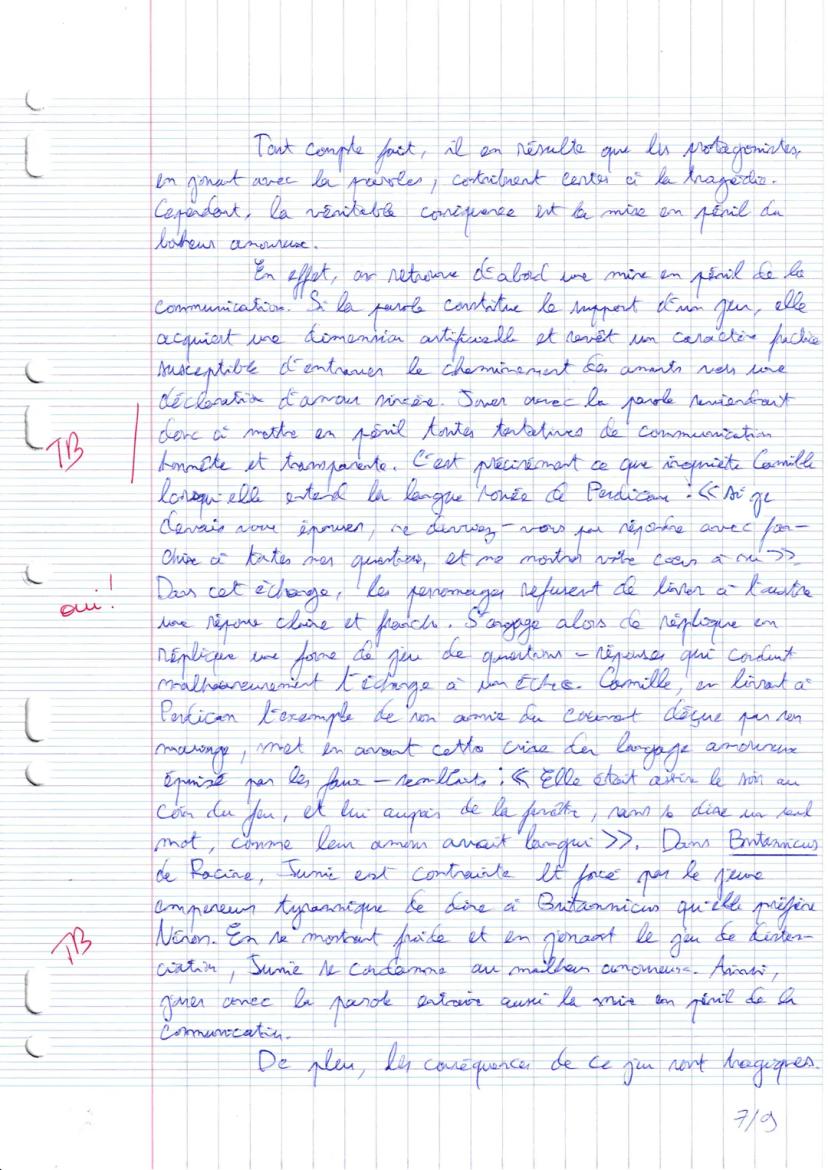 Tout compte fait, il en résulte que les protagonistes,
en jouant avec la paroles, contribuent certes à la tragédie.
Cependant, la véritable conséquence est la mise en péril du
bonheur amoureux.
En effet, on retrouve d'abord une mise en péril de la
communication. Si la parole constitue le support d'un jeu, elle
acquiert une dimension artificielle et revêt un caractère factice
susceptible d'entraver le cheminement des amants vers une
déclaration d'amour sincère. Jouer avec la parole reviendrait
donc à mettre en péril toutes tentatives de communication
TB
honnête et transparente. C'est précisément ce que inquiète Camille
lorsqu'elle entend la langue rouée de Perdican : << Si je
devais vous épouser, ne devriez-vous pas répondre avec fran-
chise à toutes mes questions, et me montrer votre cœur à nu >>.
Dans cet échange, les personnages refusent de livrer à l'autre
oui !
une réponse claire et franche. S'engage alors de réplique en
réplique une forme de jeu de questions - réponses qui conduit
malheureusement l'échange à un échec. Camille, en livrant à
Perdican l'exemple de son amie du couvent déçue par son
mariage, met en avant cette crise du langage amoureux
épuisé par les faux - semblants : << Elle était assise le soir au
coin du feu, et lui auprès de la fenêtre, sans se dire un seul
mot, comme leur amour avait langui >>. Dans Britannicus
de Racine, Junie est contrainte et forcé par le jeune
empereur tyrannique de dire à Britannicus qu'elle préfère
Néron. En se montrant froide et en jouant le jeu de distan-
TB
ciation, Junie se condamne au malheur amoureux. Ainsi,
jouer avec la parole entraîne aussi la mise en péril de la
communication.
De plus, les conséquences de ce jeu sont tragiques.
7/9